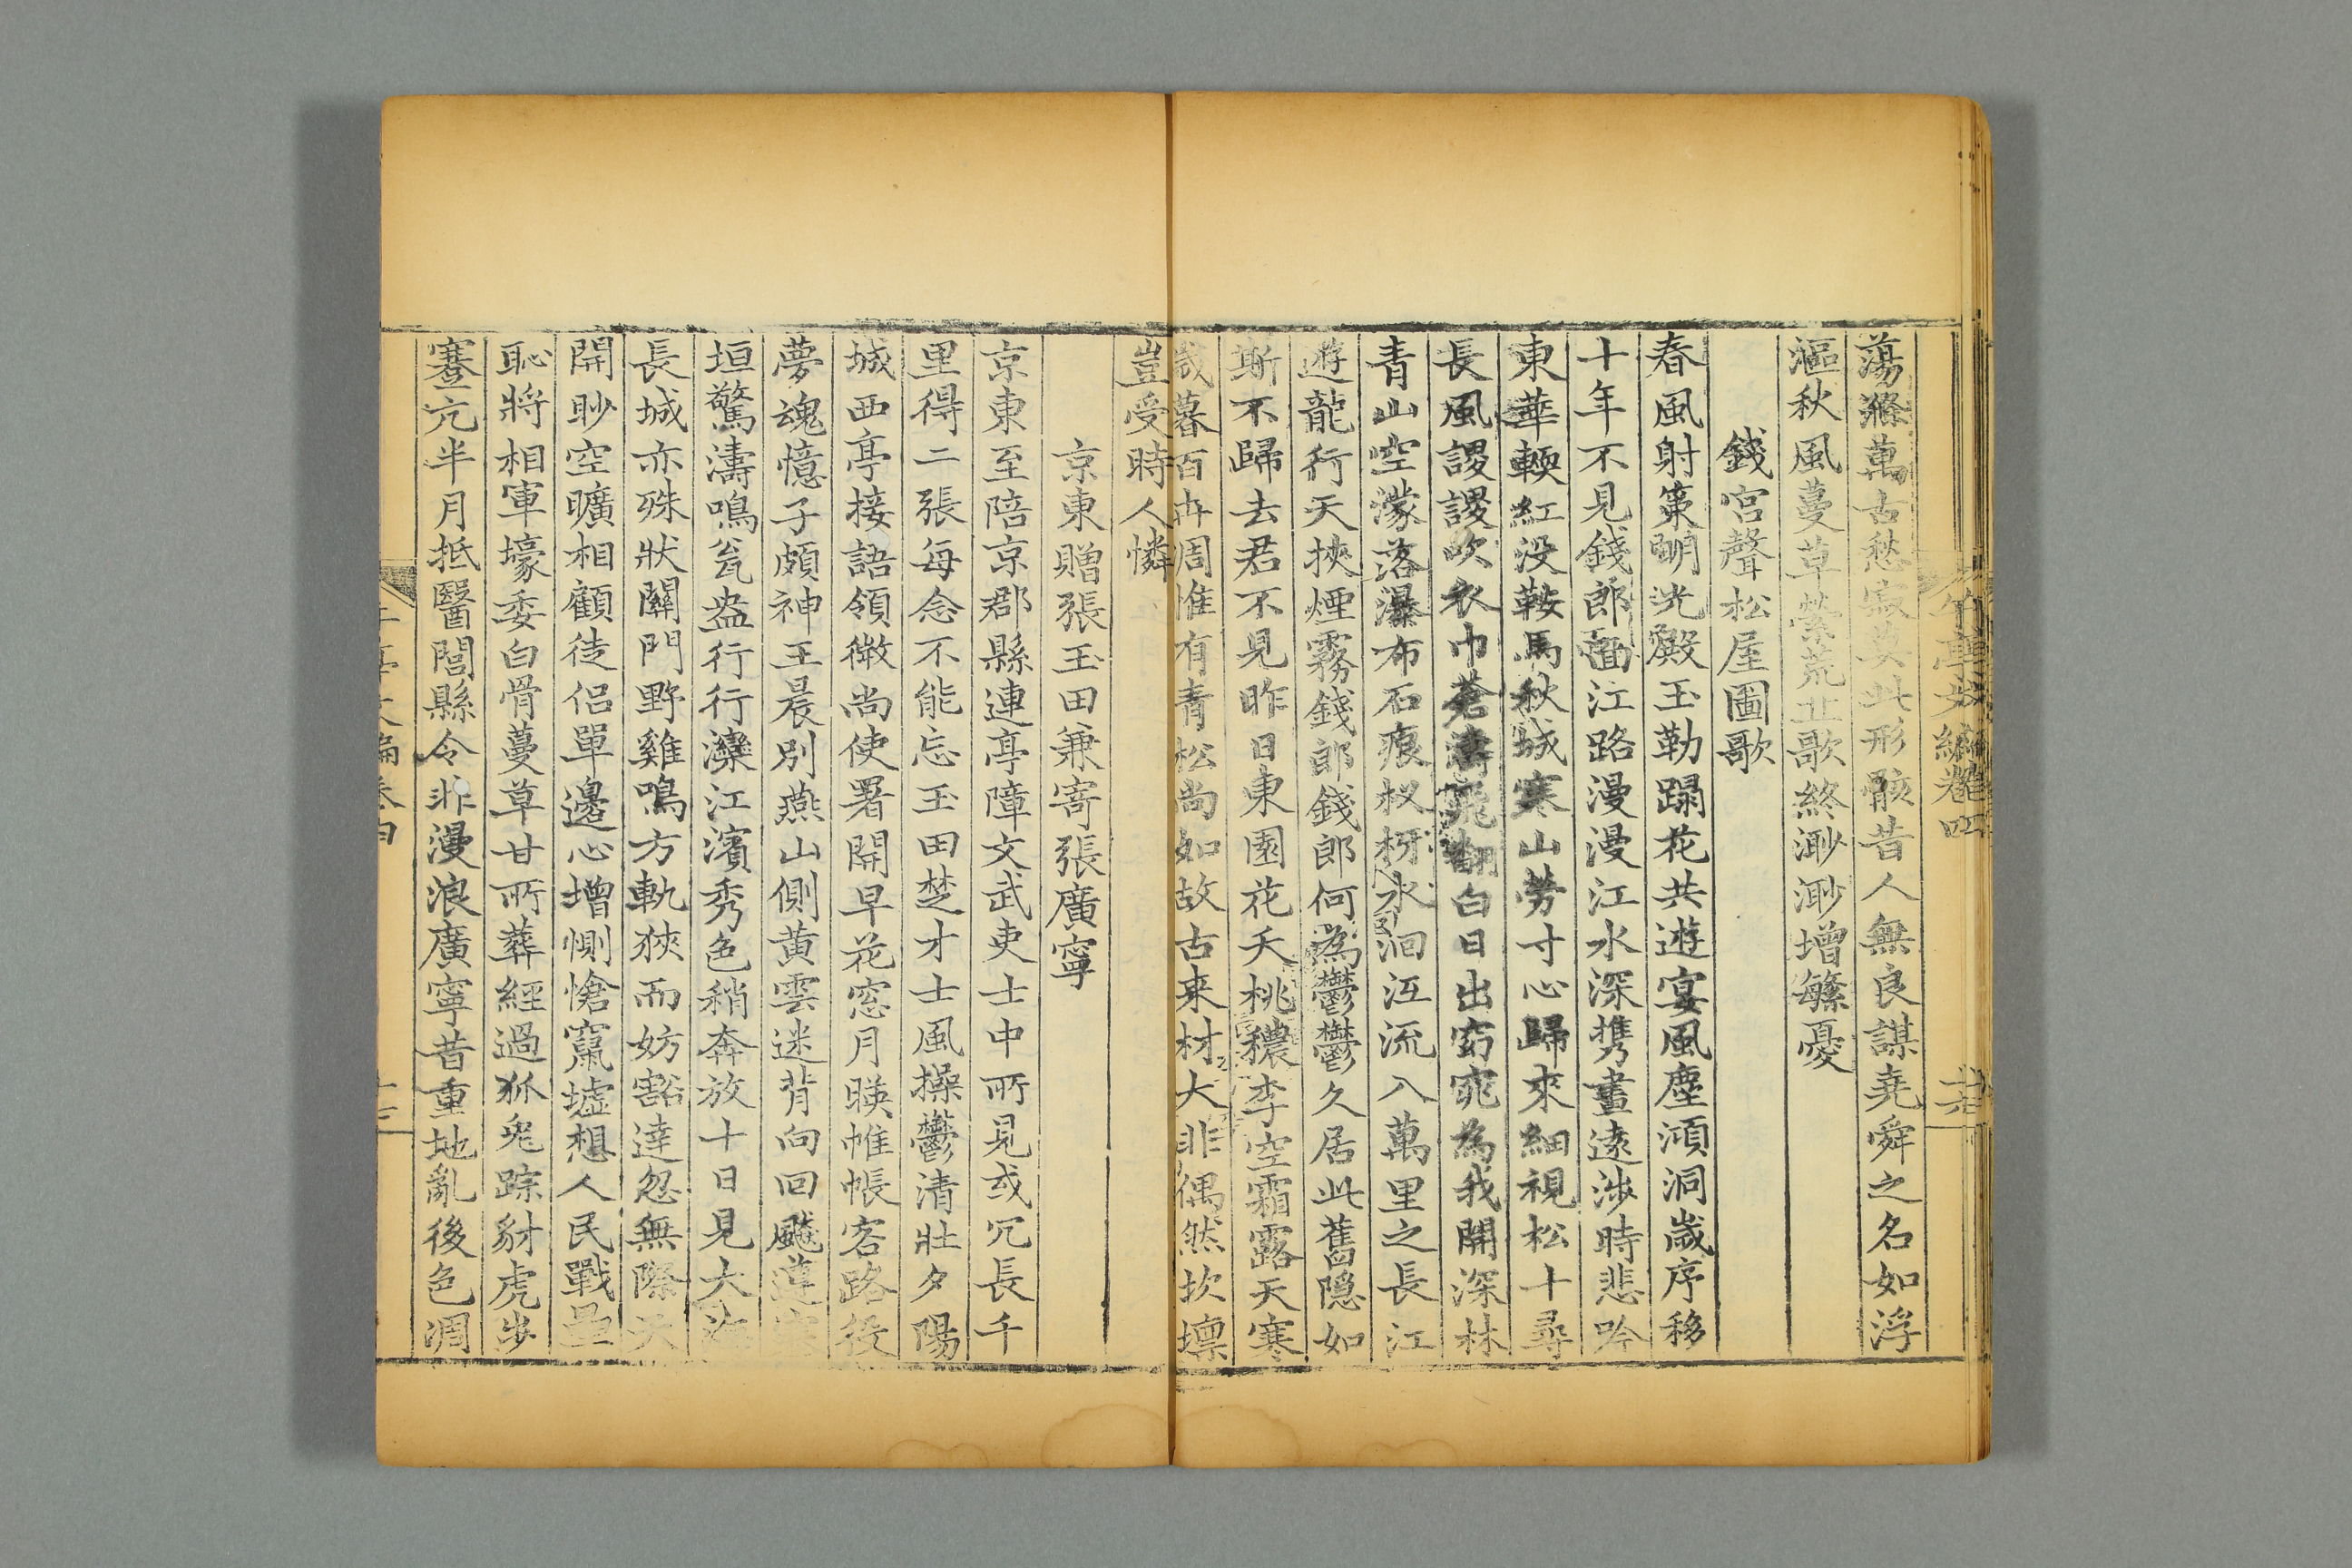 蕩滌萬古愁寂莫此形骸昔人無良謀堯舜之名如浮
漚秋風蔓草縈荒丘歌終渺渺增繁憂
錢宮聲松屋圖歌
春風射策明光殿玉勒蹋花共遊宴風塵澒洞歲序移
十年不見錢郎面江路漫漫江水深携畫遠涉時悲吟
東華輭紅沒鞍馬秋城寒山勞寸心歸來細視松十尋
長風謖謖吹衣巾蒼濤飛翻白日出窈窕為我開深林
青山空濛落瀑布石痕杈枒水洄沍流入萬里之長江
遊龍行天挾煙霧錢郎錢郎何為鬱鬱久居此舊隱如
斯不歸去君不見昨日東園花夭桃穠李空霜露天寒
歲暮百卉凋惟有青松尚如故古來材大非偶然坎壈
豈受時人憐
京東贈張玉田兼寄張廣寧
京東至陪京郡縣連亭障文武吏士中所見或冗長千
里得二張每念不能忘玉田楚才士風操鬱清壯夕陽
城西亭接語領徽尚使署開早花窓月暎帷帳客路役
夢魂憶子頗神王晨別燕山側黄雲迷背向回飈蓬
垣驚濤鳴瓮盎行行灤江濱秀色稍奔放十日見大海
長城亦殊狀關門野雞鳴方軌狹而妨豁達忽無際天
開眇空曠相顧徒侶單邊心增惻愴竄墟想人民戰壘
恥將相軍壕委白骨蔓草甘所葬經過狐兔踪豺虎步
蹇亢半月抵醫閭縣令非漫浪廣寧昔重地亂後色凋